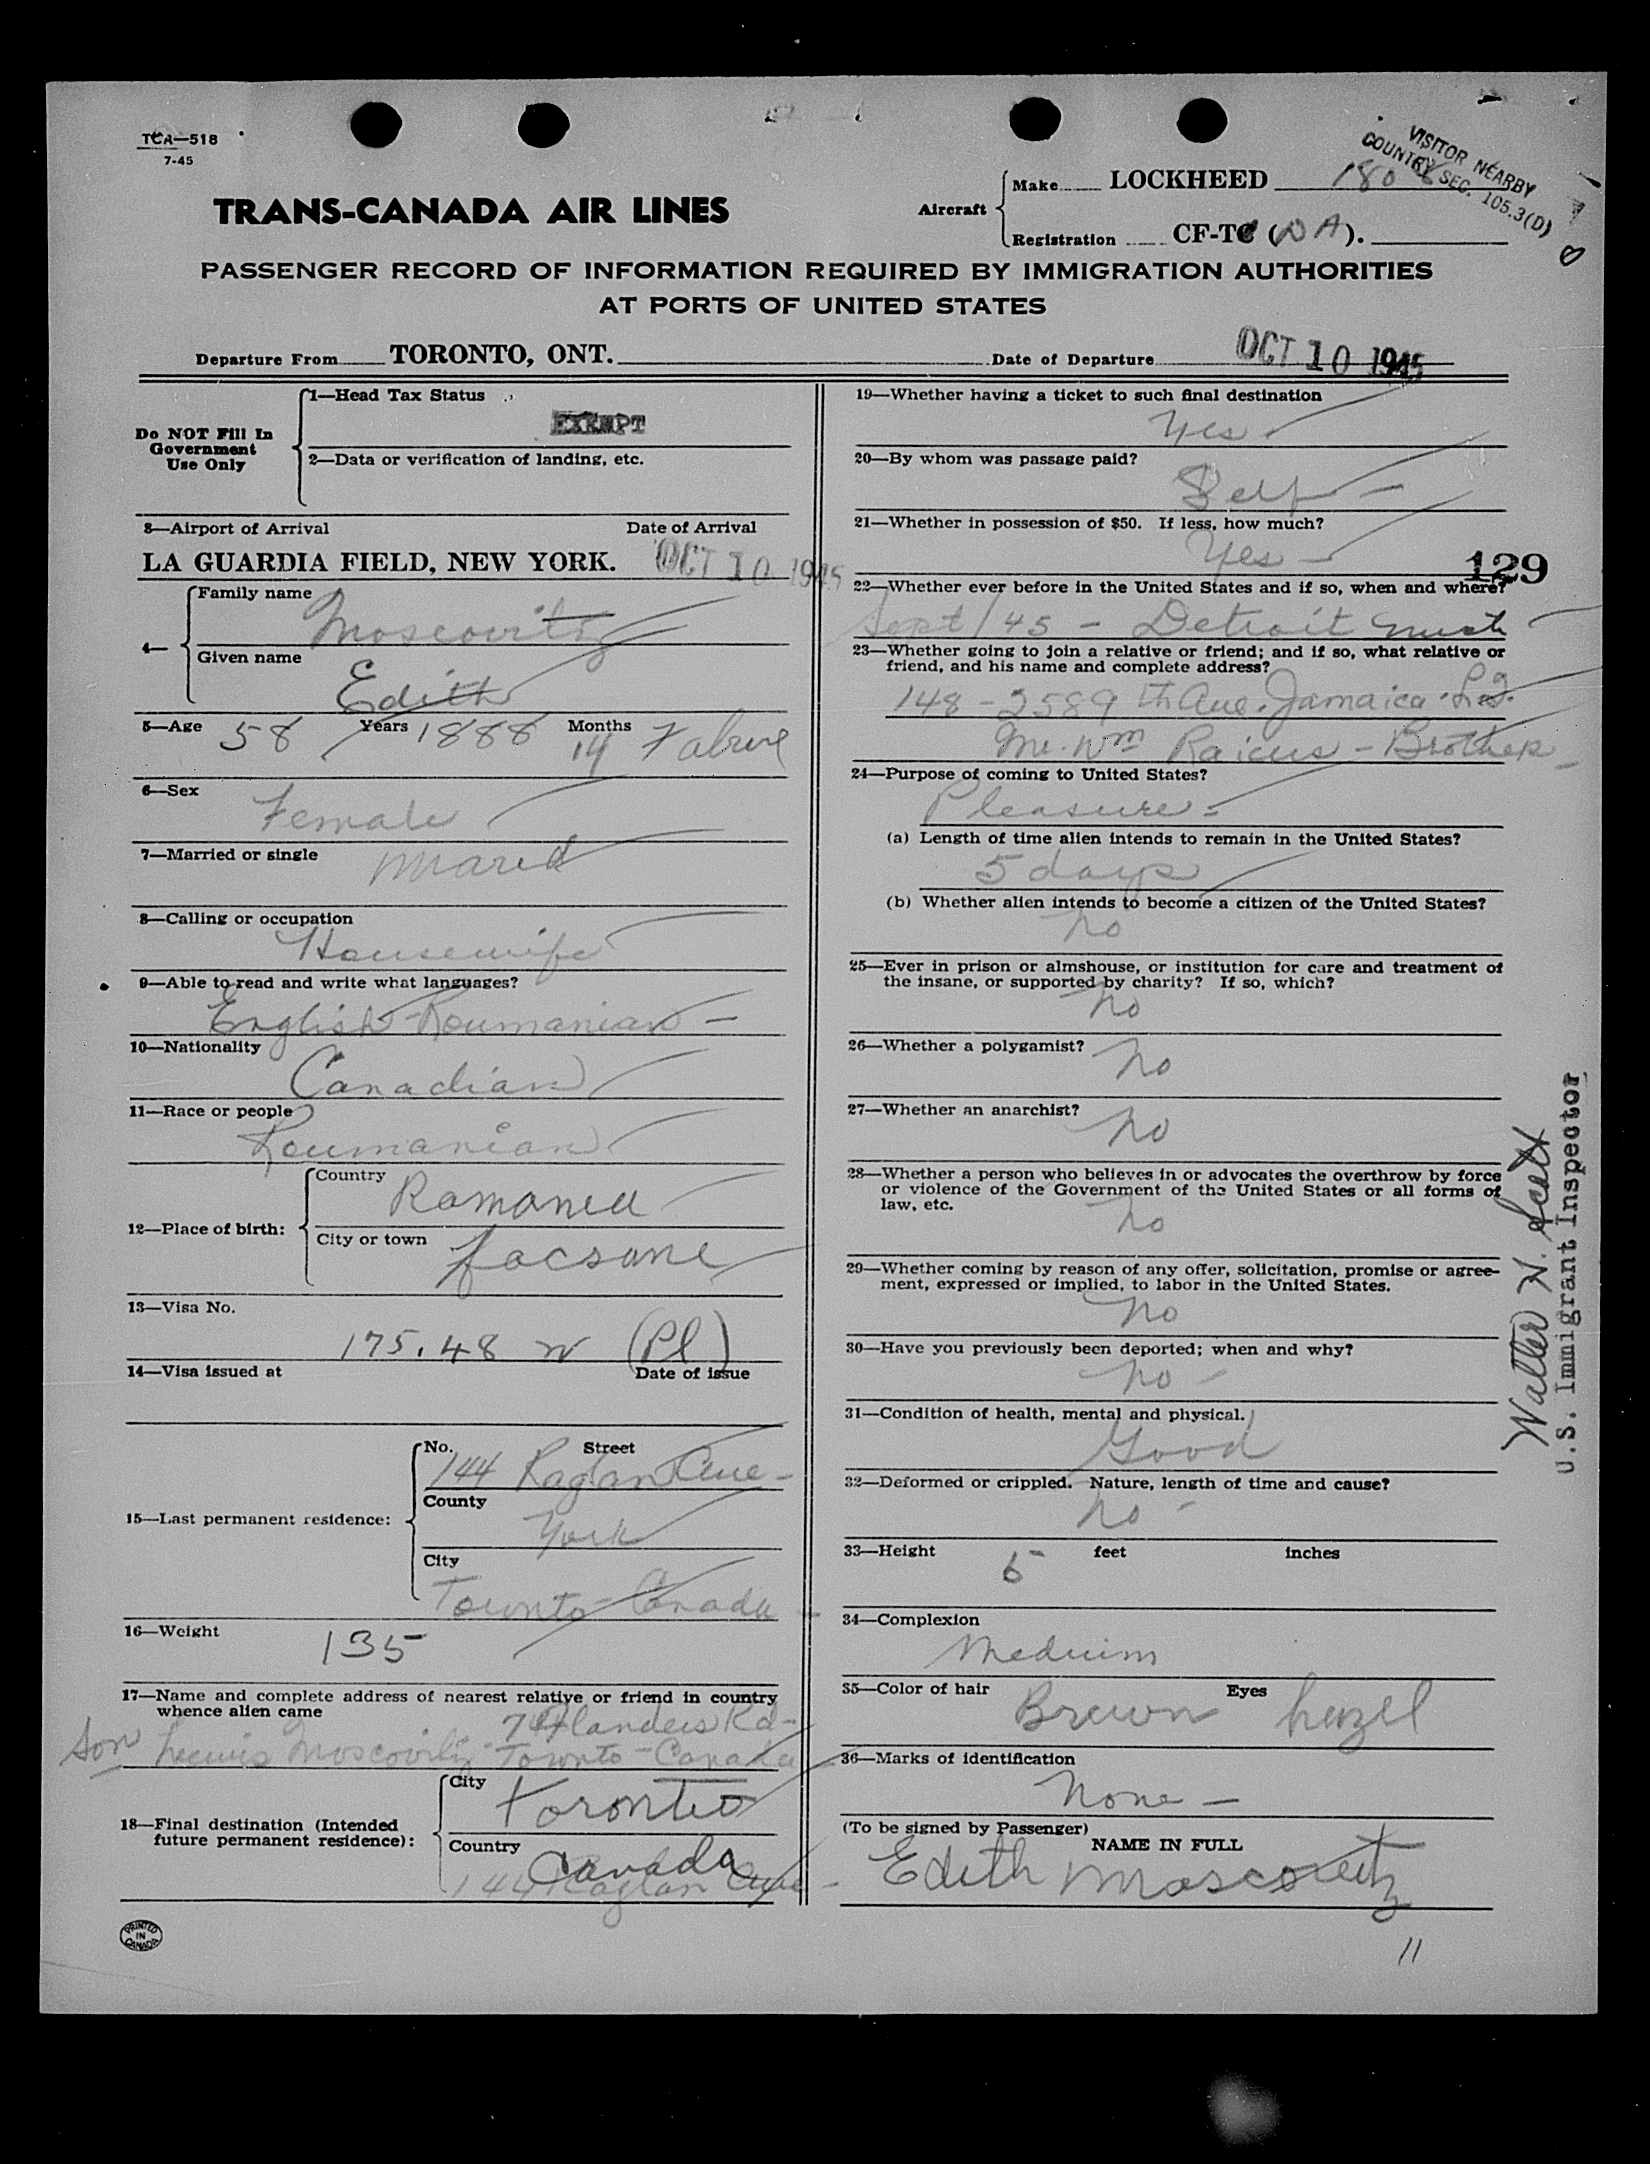 TCA—518
7-45
VISITOR NEARBY
COUNTRY SEC. 105.3(D)
TRANS-CANADA AIR LINES
Aircraft
Make LOCKHEED 180
Registration CF-TC (DA).
PASSENGER RECORD OF INFORMATION REQUIRED BY IMMIGRATION AUTHORITIES
AT PORTS OF UNITED STATES
Departure From TORONTO, ONT. Date of Departure OCT 10 1945
Do NOT Fill In
Government
Use Only
1—Head Tax Status
EXEMPT
2—Data or verification of landing, etc.
3—Airport of Arrival Date of Arrival
LA GUARDIA FIELD, NEW YORK. OCT 10 1945
4—
Family name
Moscovitz
Given name
Edith
5—Age 58 Years 1888 Months 14
6—Sex
Female
7—Married or single
Mared
8—Calling or occupation
Housewife
9—Able to read and write what languages?
English-Roumanian -
10—Nationality
Canadian
11—Race or people
Roumanian
12—Place of birth:
Country
Romania
City or town
focsane
13—Visa No.
175.48 w (Pl)
14—Visa issued at Date of issue
15—Last permanent residence:
No. Street
144 Raglan Ave -
County
York
City
Toronto - Canada
16—Weight
135
17—Name and complete address of nearest relative or friend in country
whence alien came
74 Flanders Rd -
Son Lewis Moscovitz - Toronto - Canada
18—Final destination (Intended
future permanent residence):
City
toronto
Country
Canada
144 Raglan Ave -
PRINTED
IN
CANADA
19—Whether having a ticket to such final destination
Yes
20—By whom was passage paid?
Self -
21—Whether in possession of $50. If less, how much?
Yes -
129
22—Whether ever before in the United States and if so, when and where?
Sept/45 - Detroit Mich
23—Whether going to join a relative or friend; and if so, what relative or
friend, and his name and complete address?
148 - 2589 th Ave. Jamaica
Mr. Wm Raicus - Brother -
24—Purpose of coming to United States?
Pleasure -
(a) Length of time alien intends to remain in the United States?
5 days
(b) Whether alien intends to become a citizen of the United States?
no
25—Ever in prison or almshouse, or institution for care and treatment of
the insane, or supported by charity? If so, which?
no
26—Whether a polygamist?
no
27—Whether an anarchist?
no
28—Whether a person who believes in or advocates the overthrow by force
or violence of the Government of the United States or all forms of
law, etc.
no
29—Whether coming by reason of any offer, solicitation, promise or agree-
ment, expressed or implied, to labor in the United States.
no
30—Have you previously been deported; when and why?
no -
31—Condition of health, mental and physical.
Good
32—Deformed or crippled. Nature, length of time and cause?
no -
33—Height 5 feet inches
34—Complexion
Medium
35—Color of hair Brown Eyes hazel
36—Marks of identification
None -
(To be signed by Passenger)
NAME IN FULL
Edith Moscovitz
11
Walter N. Scott
U.S. Immigrant Inspector